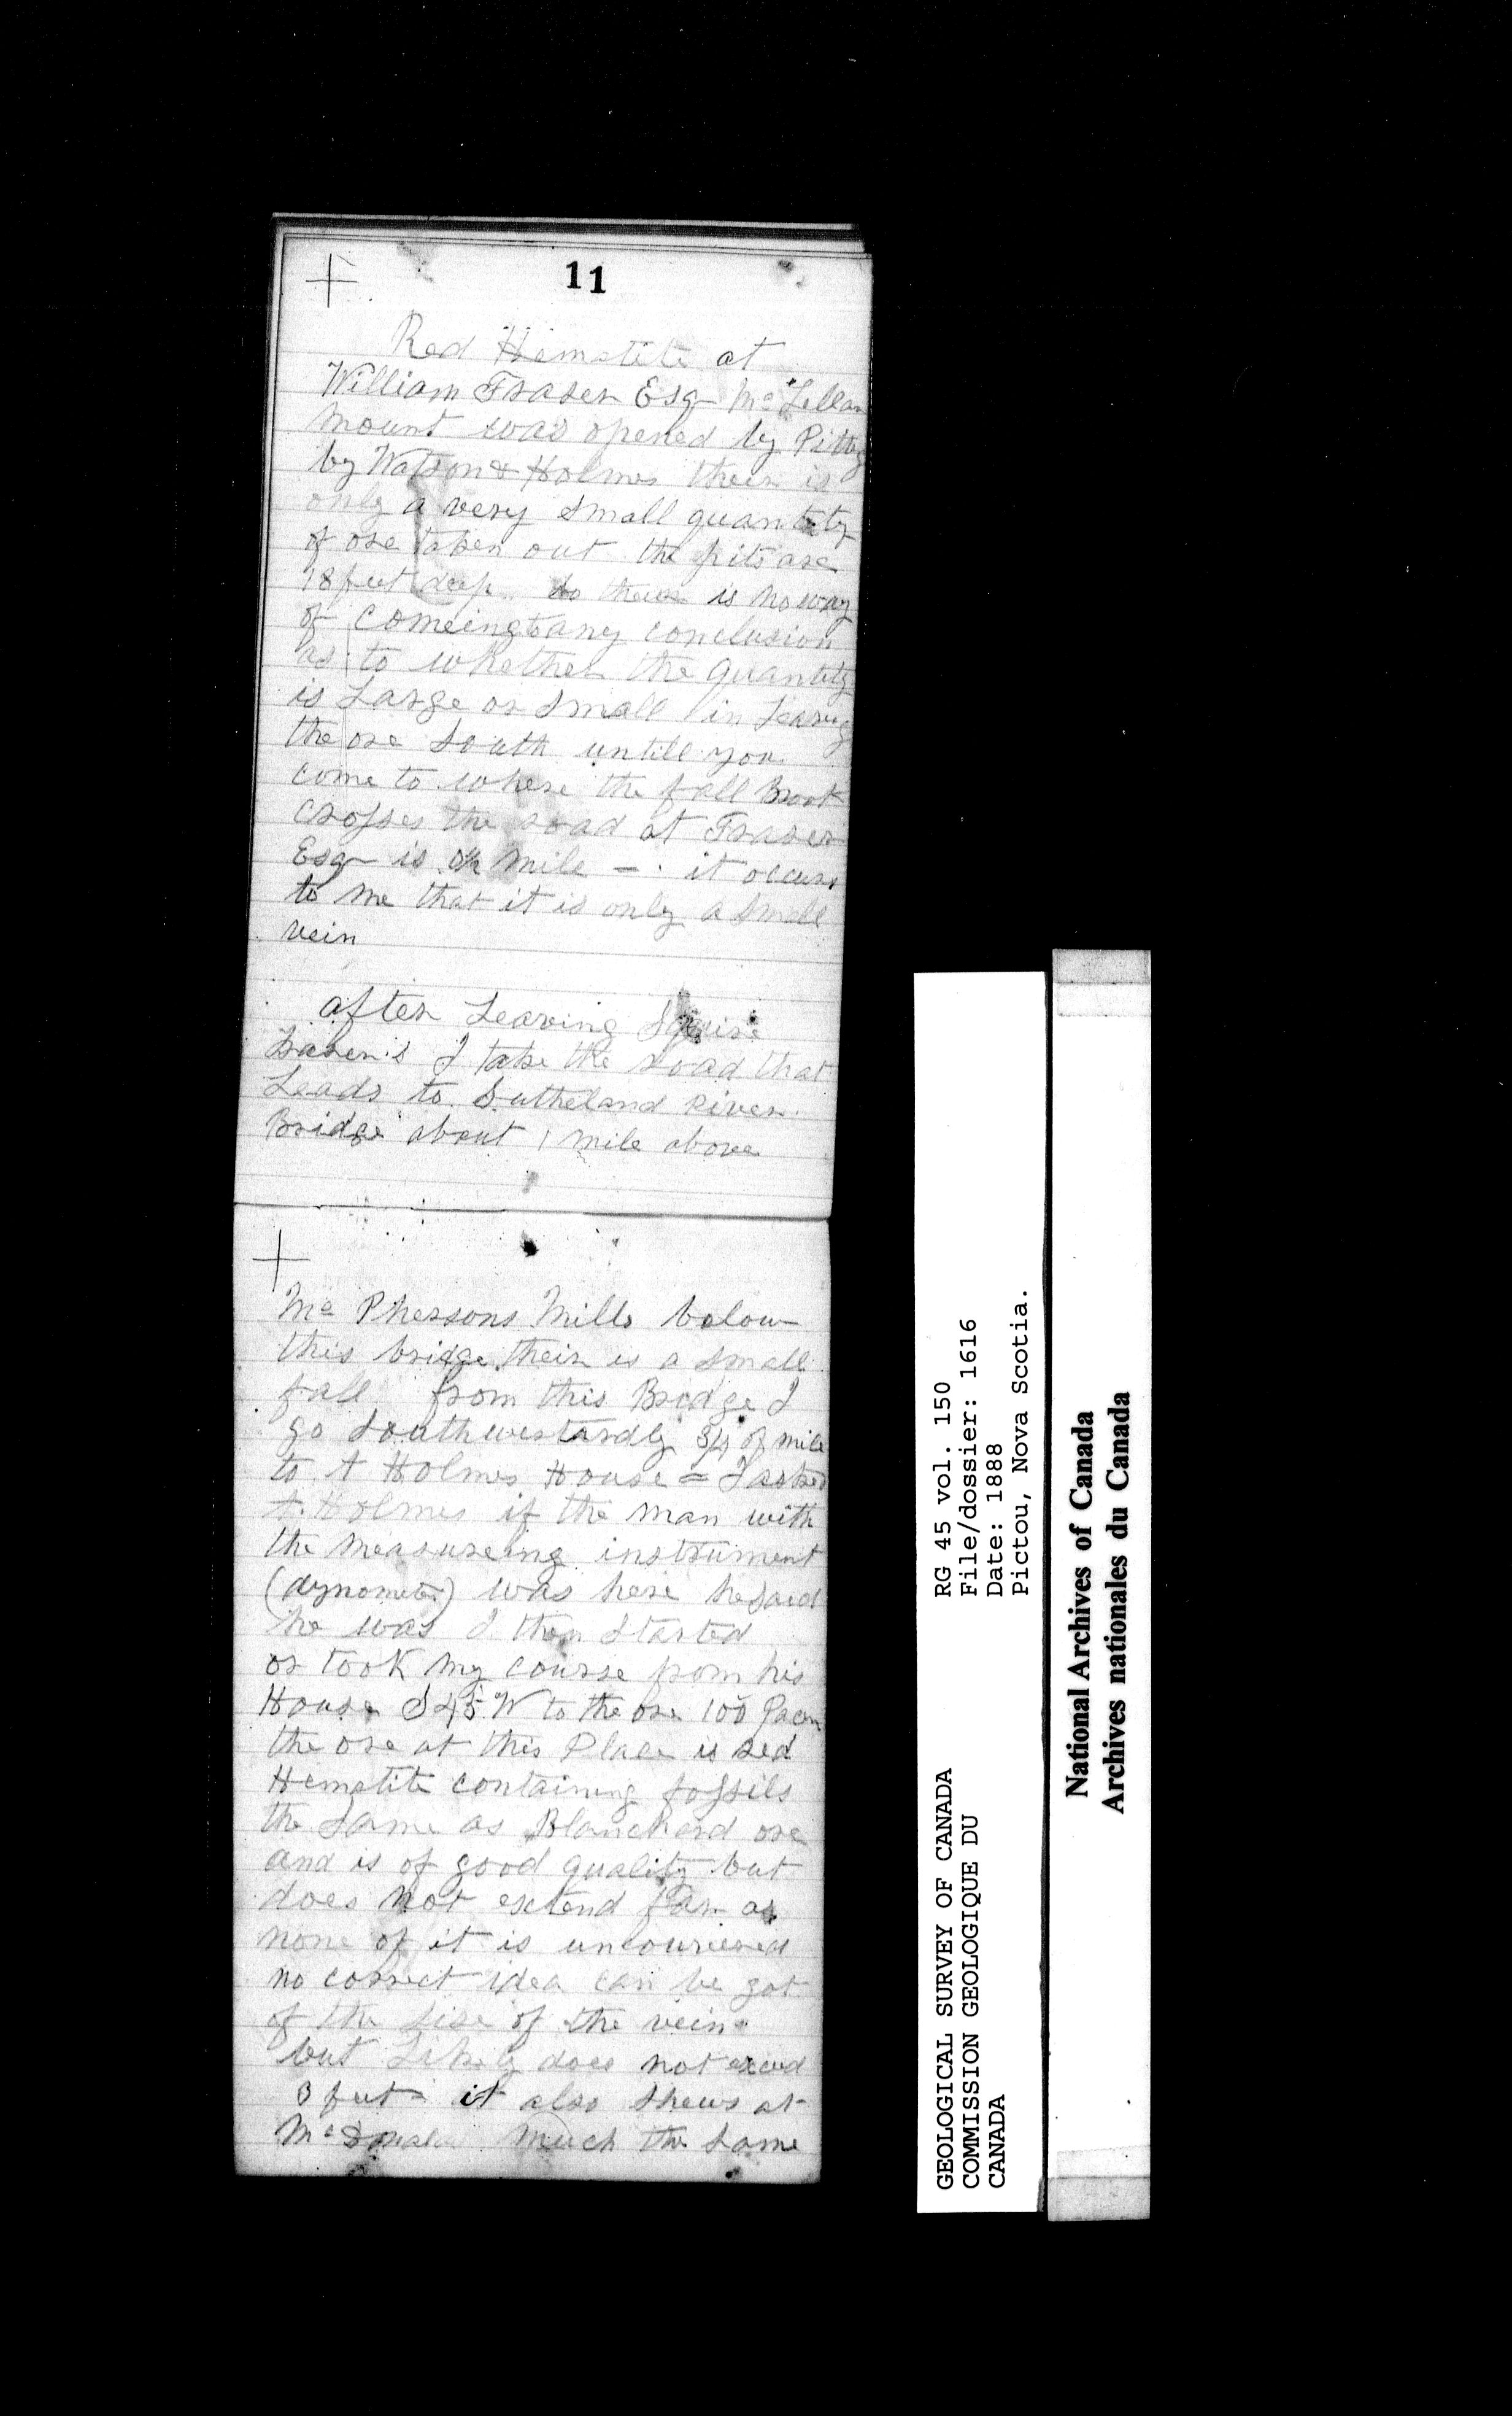 11
Red Hemetite at
William Fraser Esq Mc Lellan
Mount was opened by Pitts
by Watson & Holmes their is
only a very small quantity
of ore taken out the pits are
18 feet deep so their is no way
of Comeing to any conclusion
as to whether the quantity
is Large or small in Leaving
the ore South untill you
come to where the fall Brook
Crosses the road at Fraser
Esq is mile - it occurs
to me that it is only a small
vein
after Leaving Squire
Fraser's I take the road that
Leads to Sutheland River
Bridge about 1 mile above
Mc Phersons Mills below
this bridge their is a small
fall from this Bridge I
go Southwestardly 3/4 of mile
to A Holmes House = I asked
A. Holmes if the man with
the measureing instrument
(dynometer) was here he said
he was I then started
or took my course from his
House S 45 W to the ore 100 Paces
the ore at this Place is red
Hemetite containing fossils
the same as Blanchard ore
and is of good quality but
does not extend far as
none of it is
no correct idea can be got
of the sise of the vein
but Likely does not exceed
3 feet - it also shews at
Mc Donalds Much the same
RG 45 vol. 150
File/dossier: 1616
Date: 1888
Pictou, Nova Scotia.
GEOLOGICAL SURVEY OF CANADA
COMMISSION GEOLOGIQUE DU
CANADA
National Archives of Canada
Archives nationales du Canada